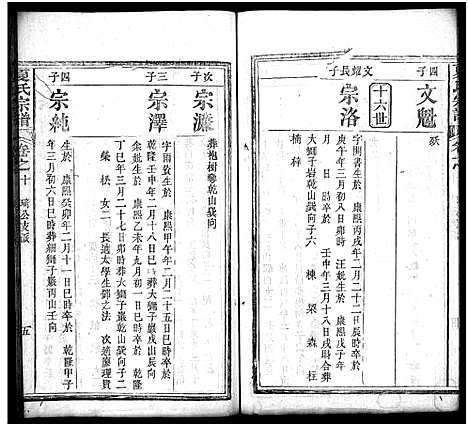 四子
文魁
殀
十六世
文耀長子
宗洛
字開書生於 康熙丙戌年二月二十一日戌時
庚午年三月初八日卯時 汪妣生於 康熙戊子年
壬申年三月十八日戌時合葬
大獅子岩乾山巽向子六 棟 梁 森 枉
次子
宗濂
葬袍樹乾山巽向
三子
宗澤
字雨資生於 康熙甲午年二月二十五日巳時卒於
乾隆壬申年二月十八日巳時葬大獅子巖戌山辰向
余妣生於 康熙乙未年九月初一日巳時卒於 乾隆
丁巳年三月二十七日卯時葬大獅子巖乾山巽向子二
柴 松 女二 長適太學生鄧之法 次適廖理賢
四子
宗純
生於 康熙癸卯年二月十一日巳時卒於 乾隆甲子
年三月初六日巳時葬細獅子巖丙山壬向
夏氏宗譜
卷之十
五